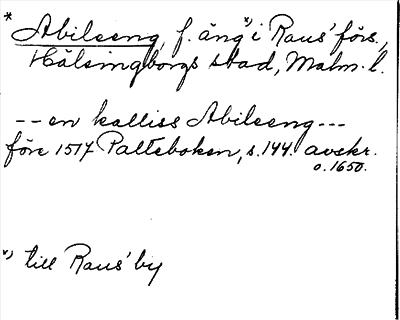 * Abilseng, f. äng *) i Raus' förs.,
Hälsingborgs stad, Malm. l.
-- en kalliss Abilseng ---
före 1517 Palteboken, s. 144. avskr.
o. 1650.
*) till Raus' by